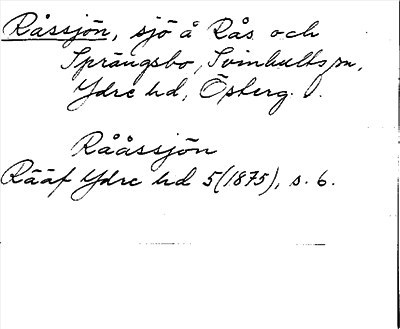 Råssjön, sjö å Rås och
Sprängsbo, Svinhults sn,
Ydre hd, Österg.
Rååssjön
Rääf Ydre hd 5(1875), s. 6.